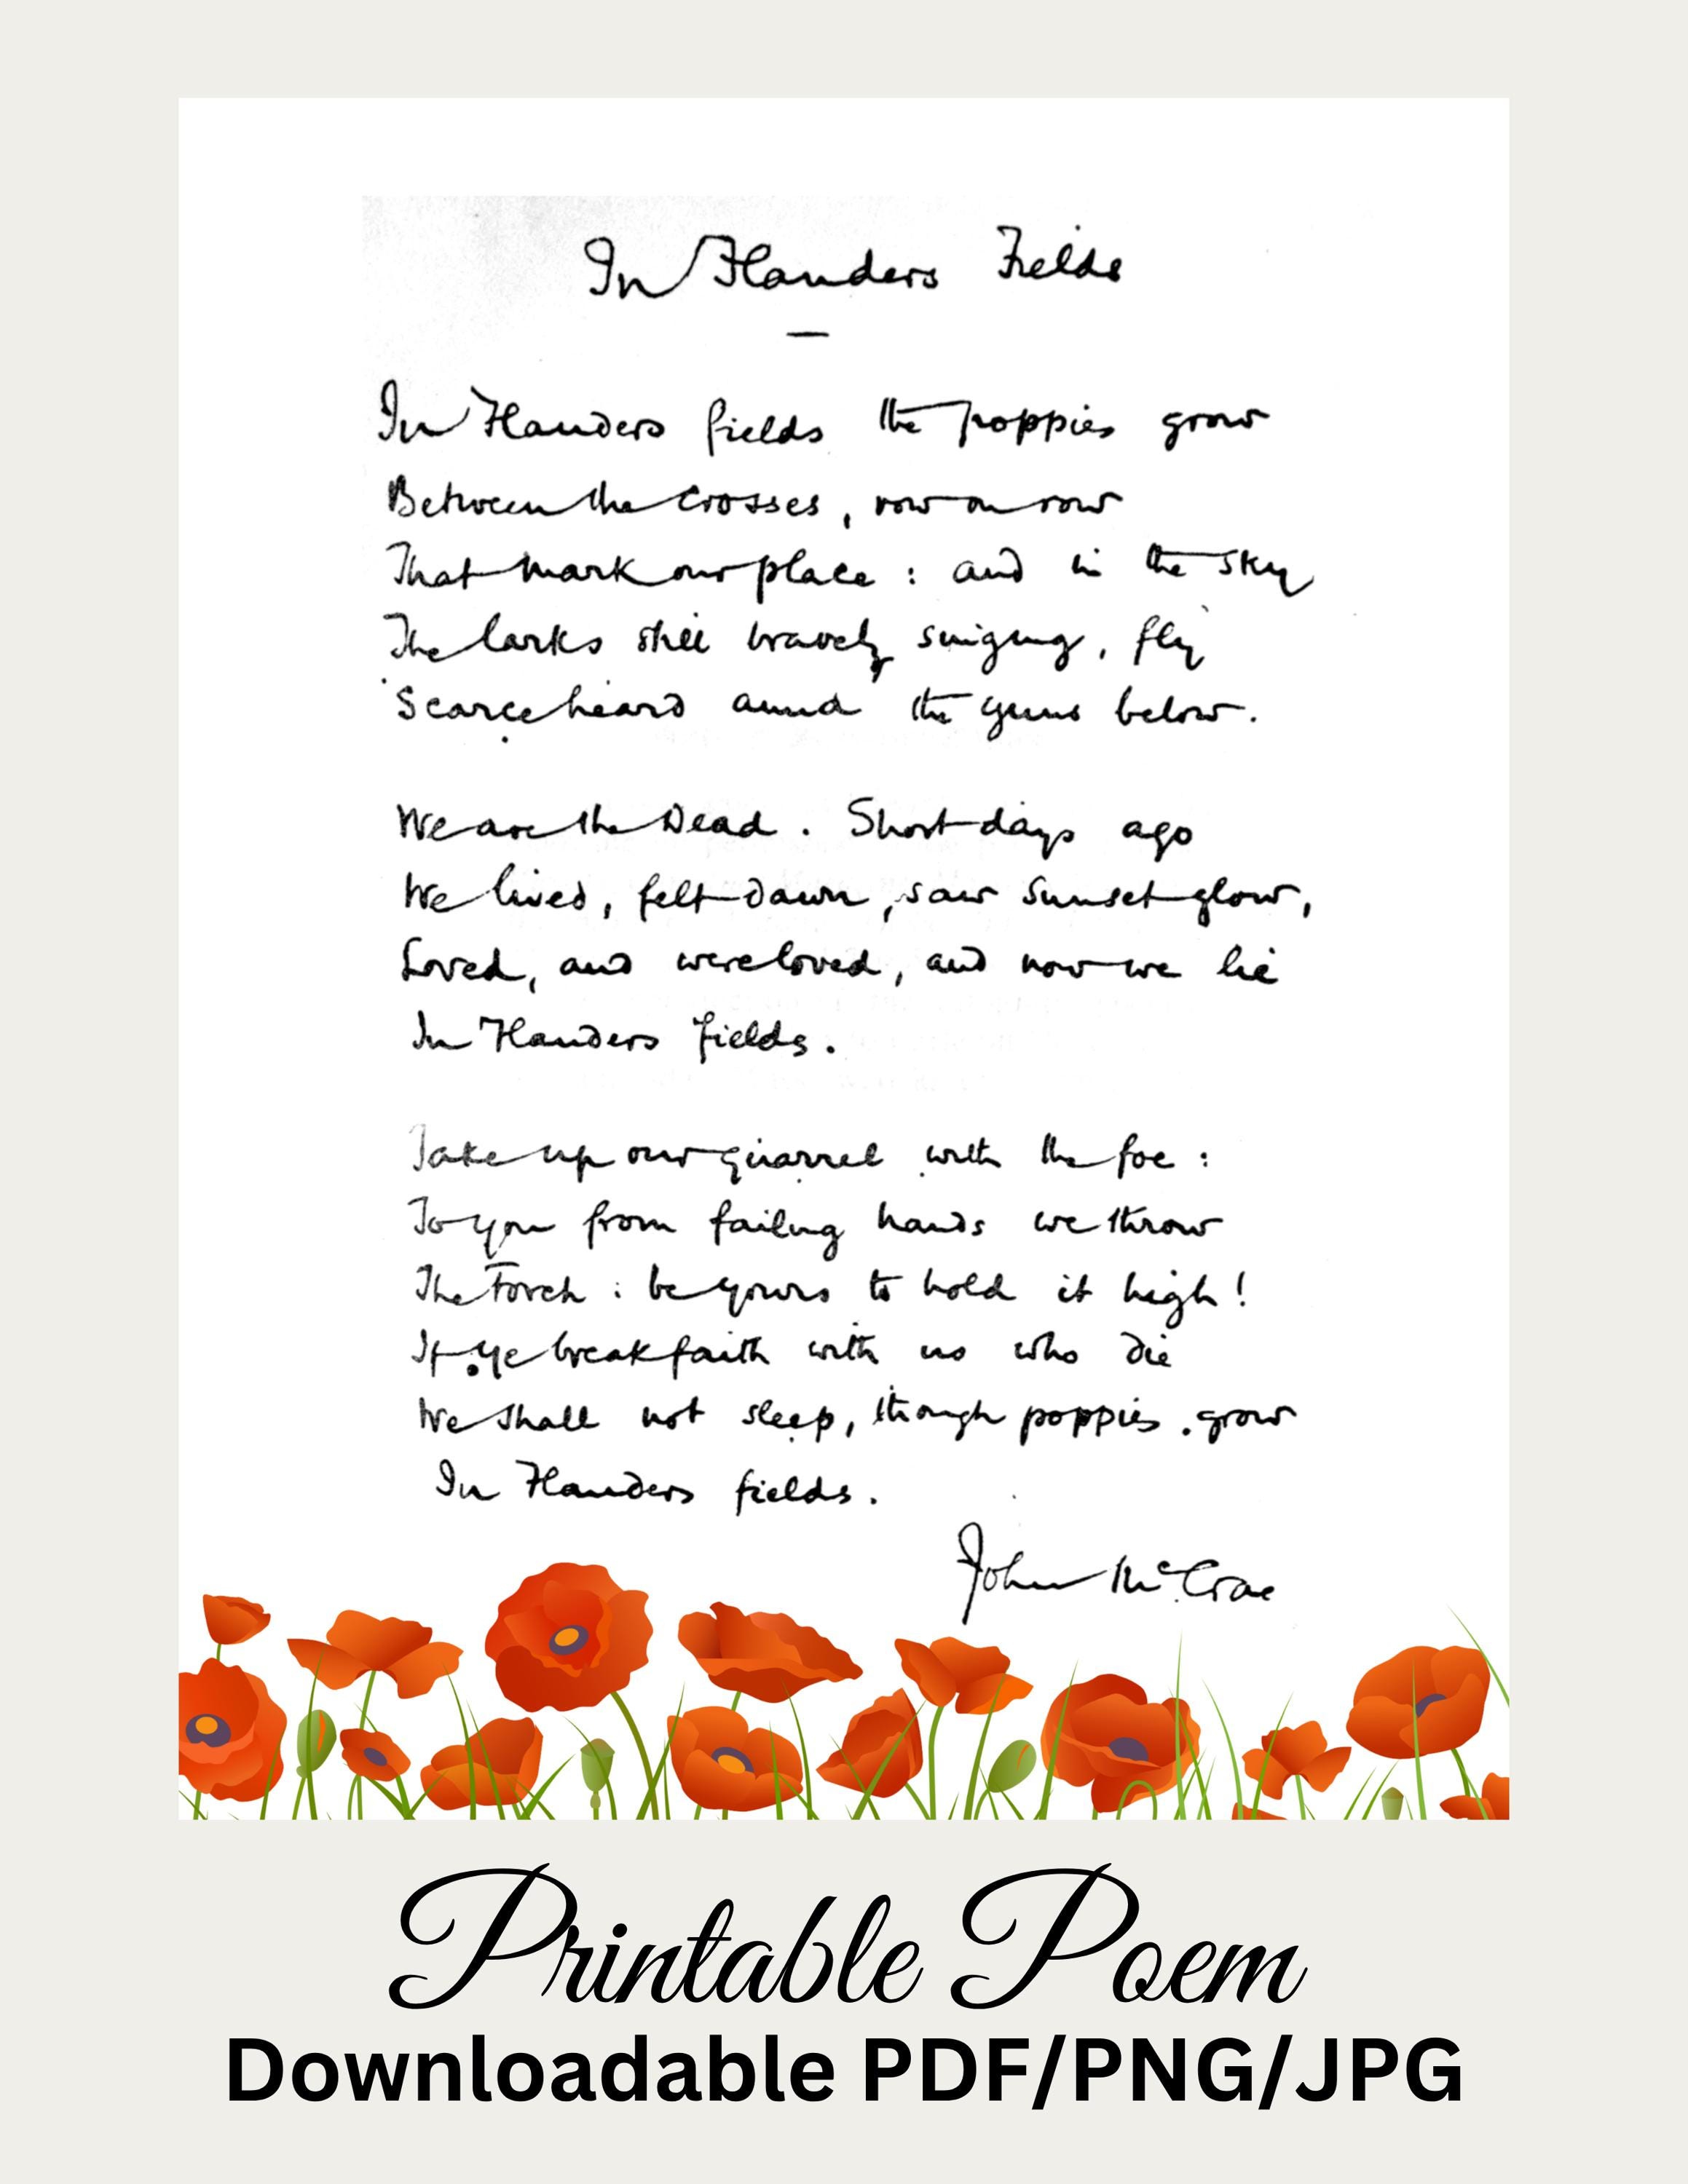 In Flanders Fields
In Flanders fields the poppies grow
Between the crosses, row on row
That mark our place : and in the sky
The larks still bravely singing, fly
Scarce heard amid the guns below.
We are the Dead. Short days ago
We lived, felt dawn, saw sunset glow,
Loved, and were loved, and now we lie
In Flanders fields.
Take up our quarrel with the foe :
To you from failing hands we throw
The Torch : be yours to hold it high!
If ye break faith with us who die
We shall not sleep, though poppies grow
In Flanders fields.
John McCrae
Printable Poem
Downloadable PDF/PNG/JPG